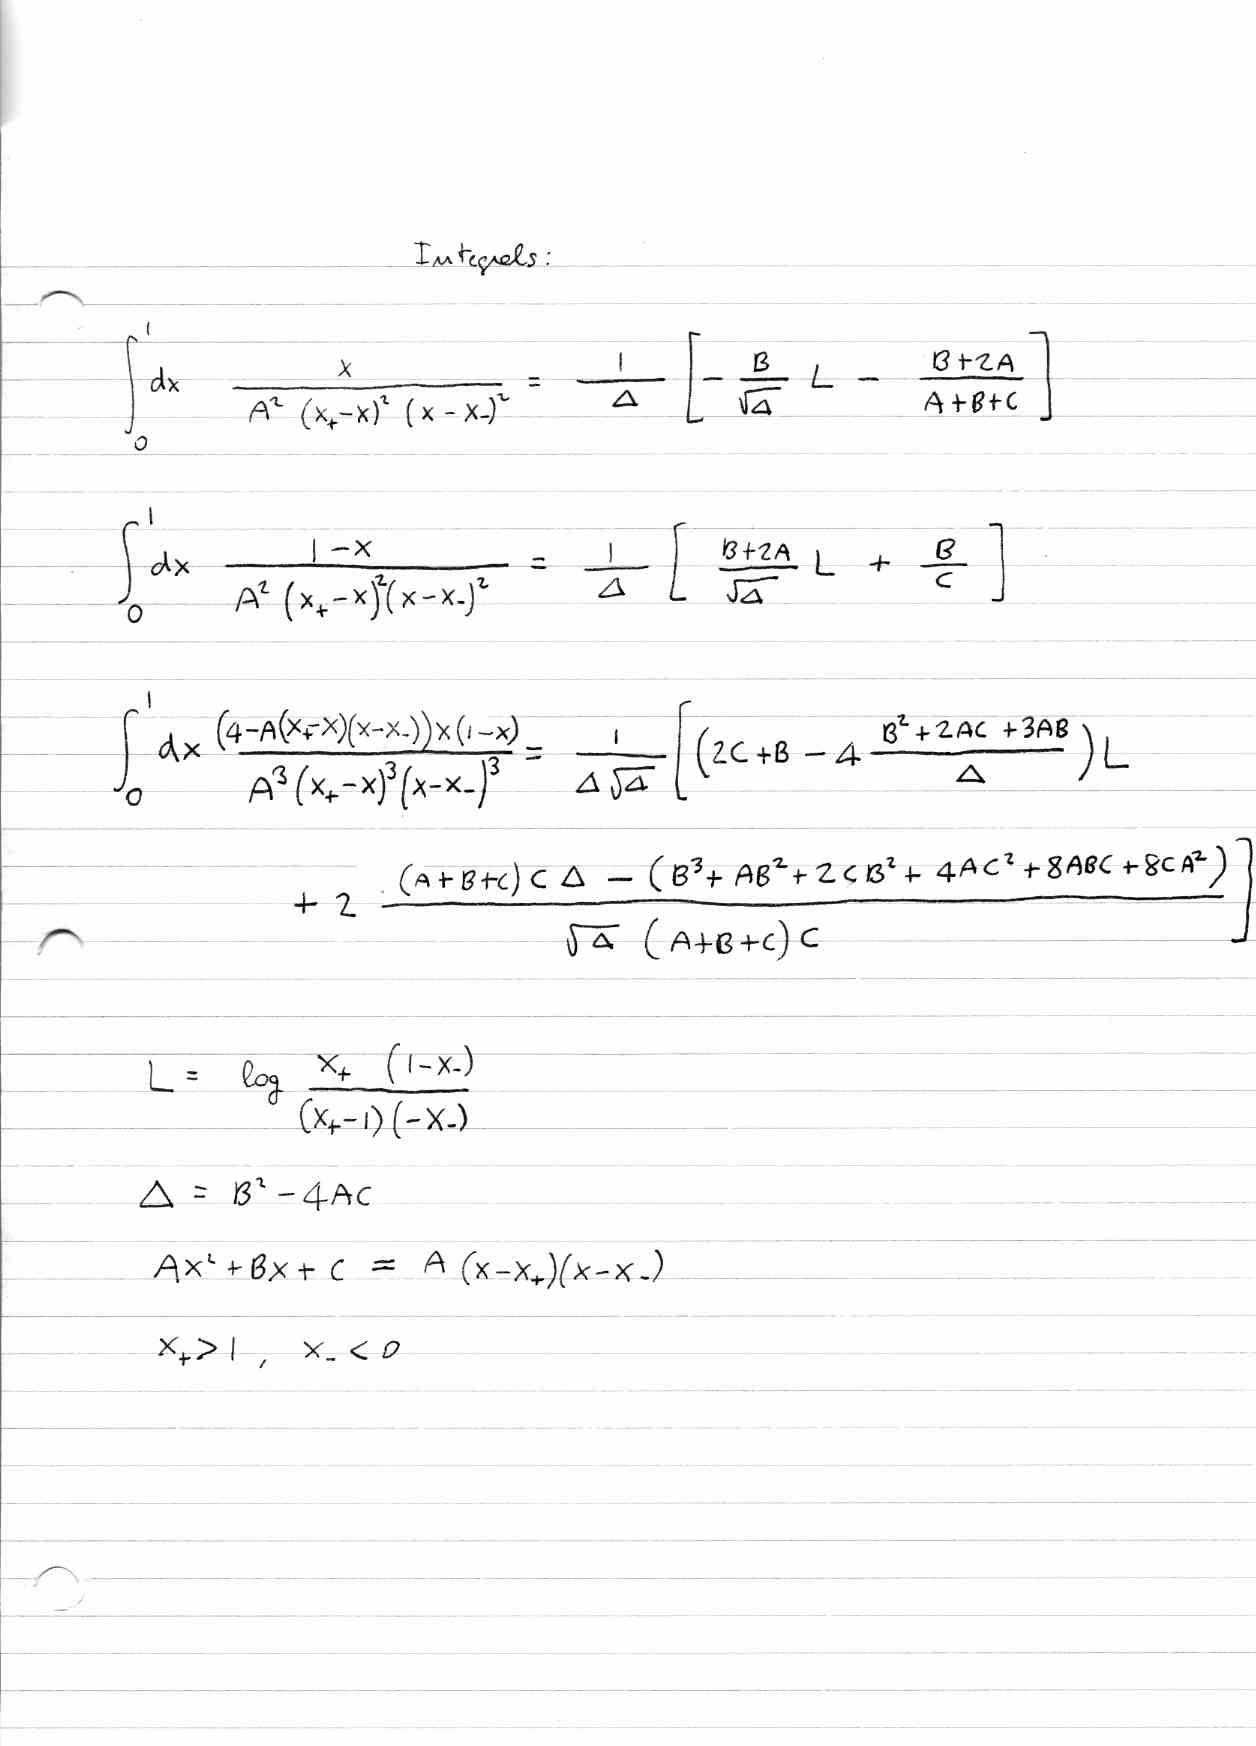 Integrals:
∫₀¹ dx x / (A² (x₊-x)² (x-x₋)²) = 1/Δ [ - B/√Δ L - (B+2A)/(A+B+C) ]
∫₀¹ dx (1-x) / (A² (x₊-x)² (x-x₋)²) = 1/Δ [ (B+2A)/√Δ L + B/C ]
∫₀¹ dx (4-A(x₊-x)(x-x₋))x(1-x) / (A³ (x₊-x)³ (x-x₋)³) = 1/(Δ√Δ) [ (2C+B - 4 (B²+2AC+3AB)/Δ) L
+ 2 ((A+B+C) C Δ - (B³+AB²+2CB²+4AC²+8ABC+8CA²)) / (√Δ (A+B+C) C) ]
L = log (x₊ (1-x₋)) / ((x₊-1)(-x₋))
Δ = B²-4AC
Ax²+Bx+C = A (x-x₊)(x-x₋)
x₊>1, x₋<0